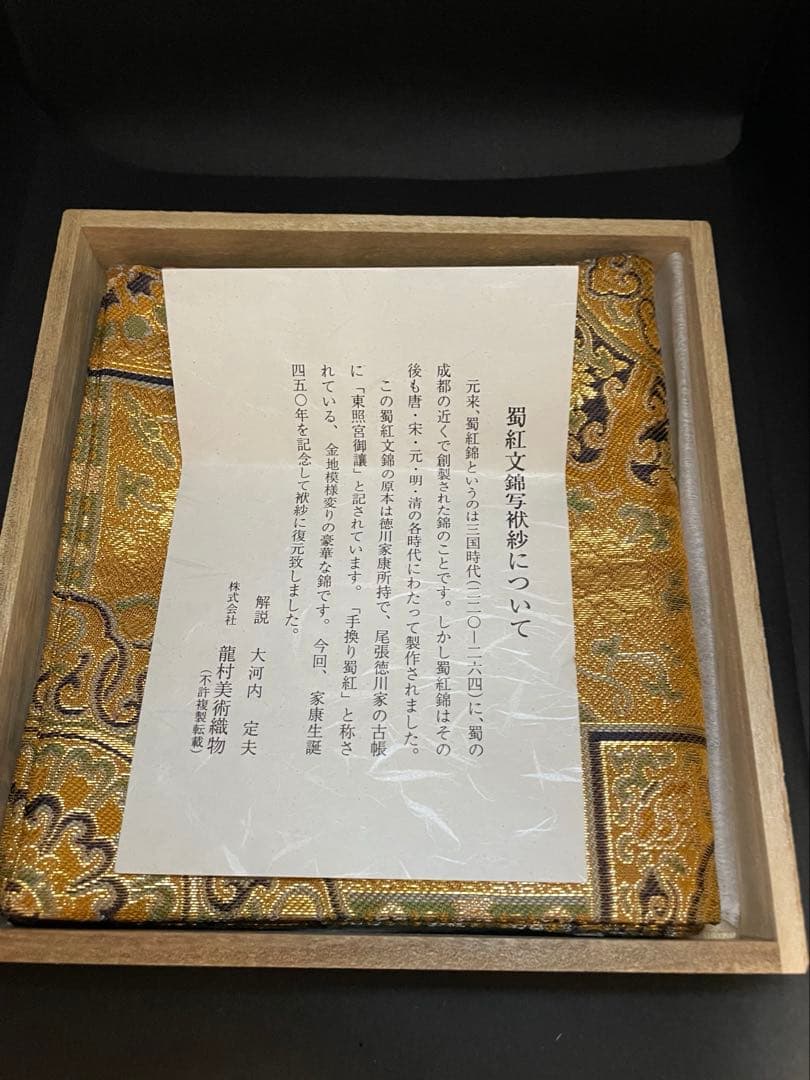 蜀紅文錦写袱紗について
元来、蜀紅錦というのは三国時代(二二〇ー二六四)に、蜀の
成都の近くで創製された錦のことです。しかし蜀紅錦はその
後も唐・宋・元・明・清の各時代にわたって製作されました。
この蜀紅文錦の原本は徳川家康所持で、尾張徳川家の古帳
に「東照宮御譲」と記されています。「手換り蜀紅」と称さ
れている、金地模様変りの豪華な錦です。今回、家康生誕
四五〇年を記念して袱紗に復元致しました。
解説 大河内 定夫
株式会社 龍村美術織物
(不許複製転載)